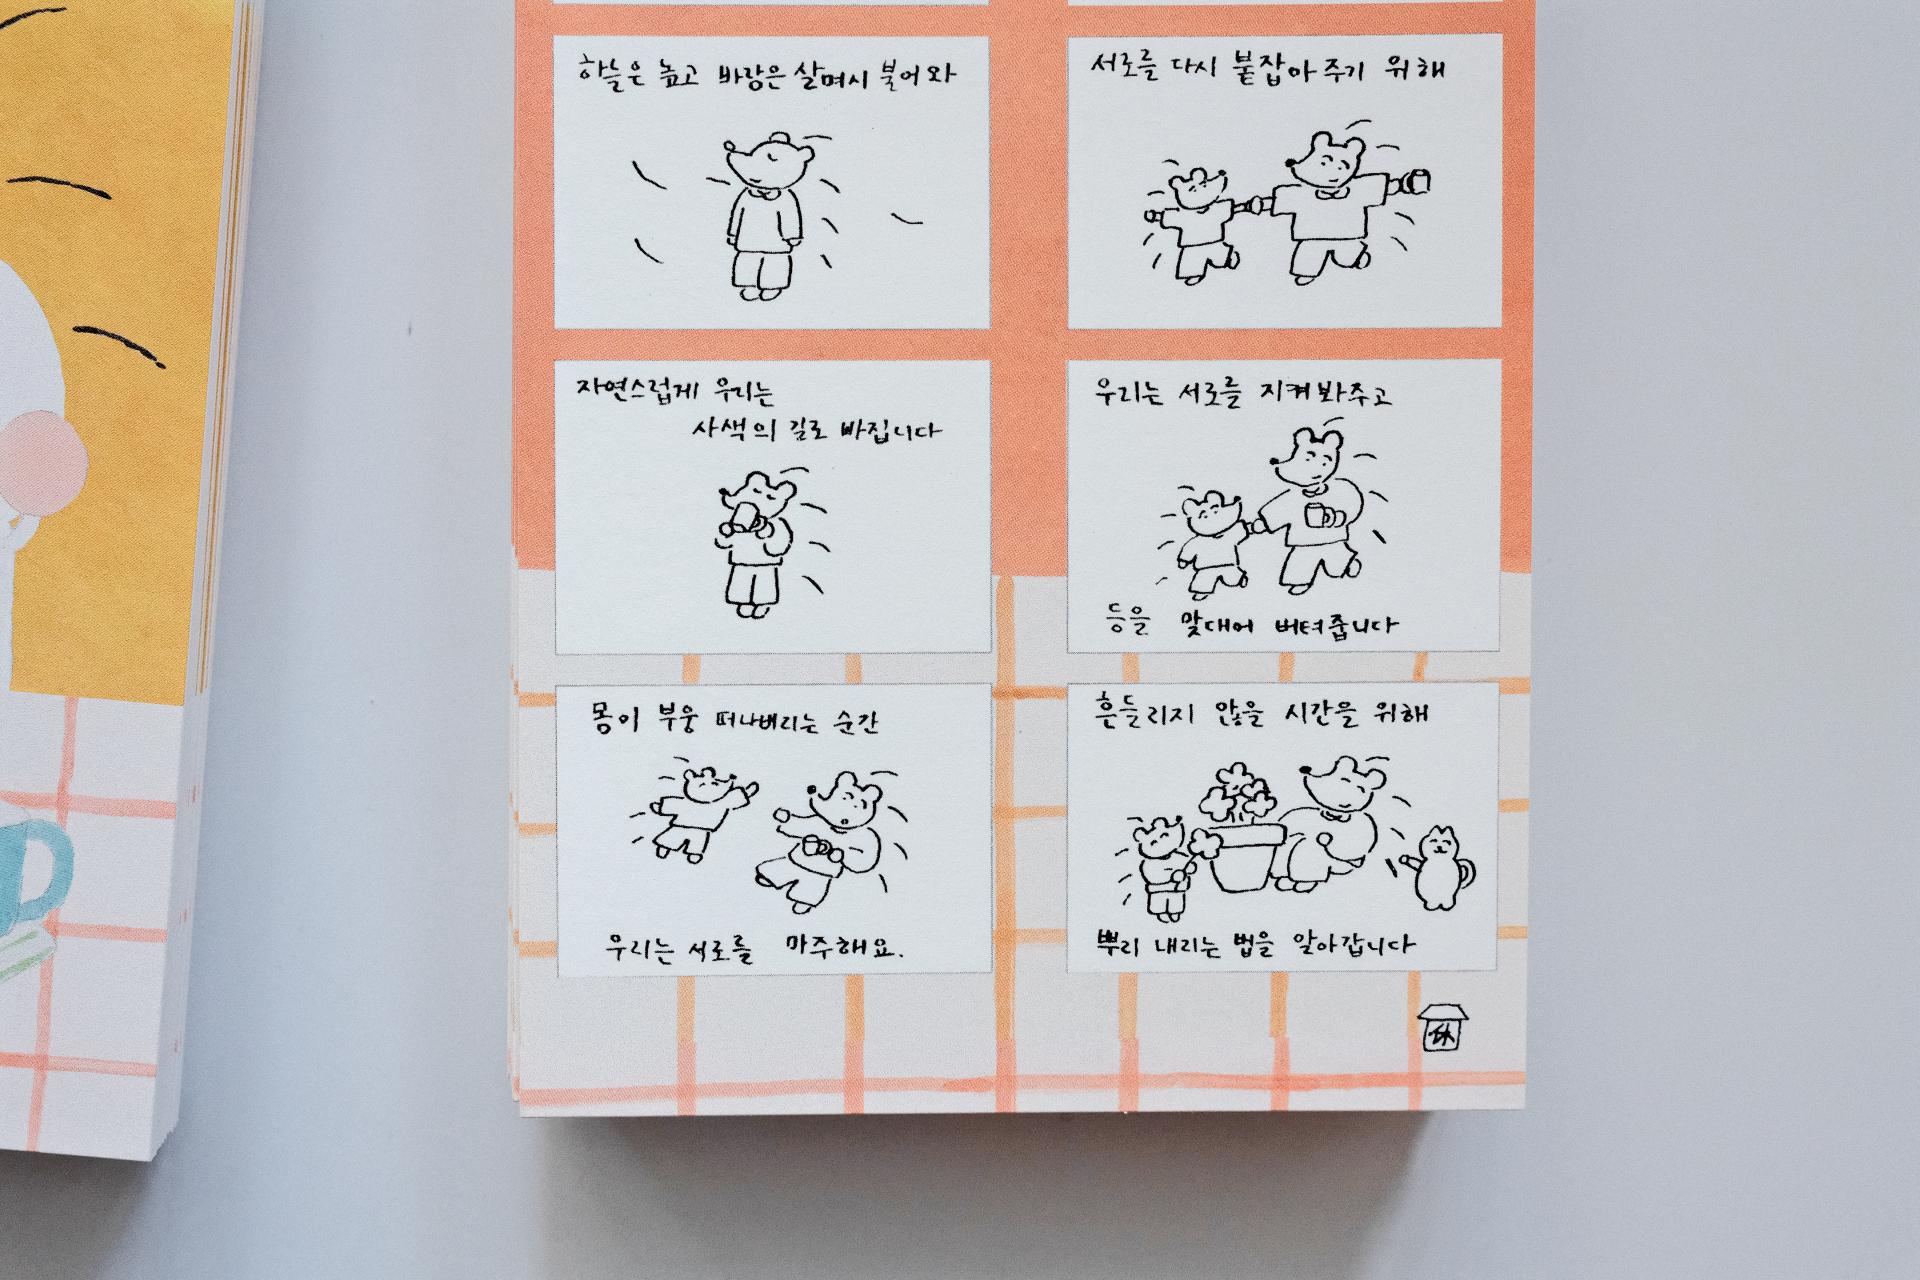 하늘은 높고 바람은 살며시 불어와
자연스럽게 우리는
사색의 길로 빠집니다
몸이 부웅 떠나버리는 순간
우리는 서로를 마주해요.
서로를 다시 붙잡아 주기 위해
우리는 서로를 지켜봐주고
등을 맞대어 버텨줍니다
흔들리지 않을 시간을 위해
뿌리 내리는 법을 알아갑니다
休